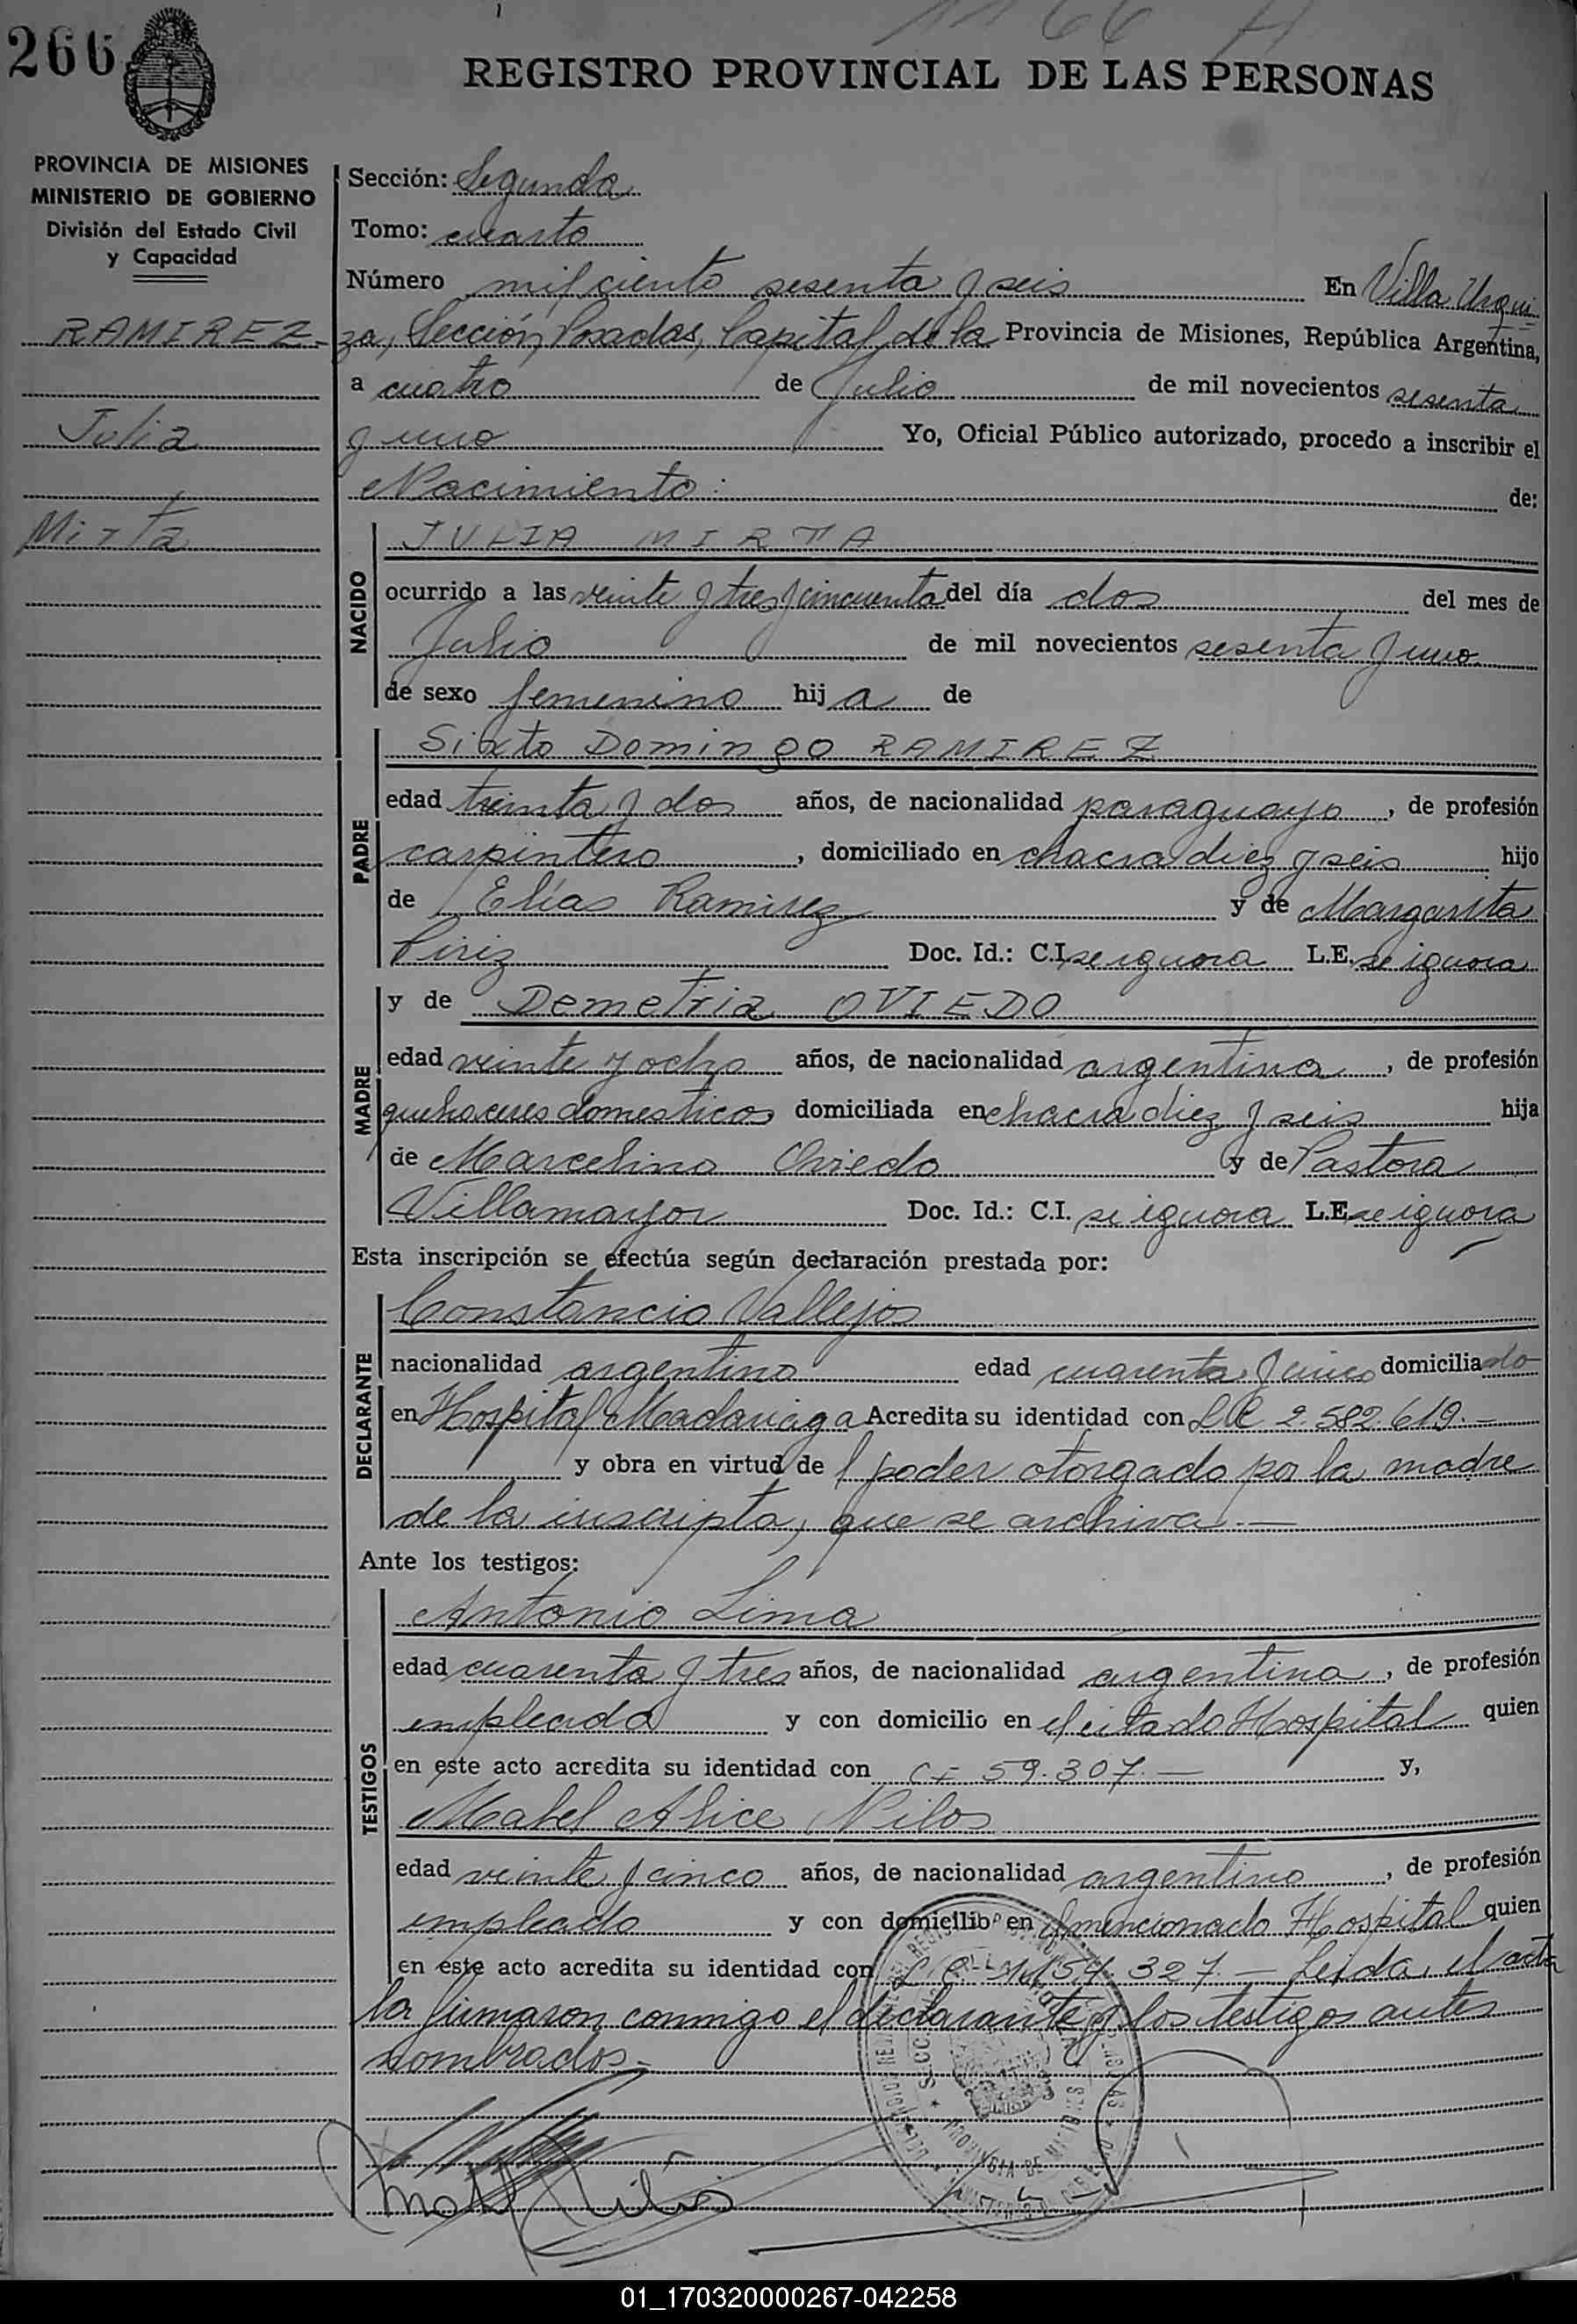 266
1166
REGISTRO PROVINCIAL DE LAS PERSONAS
PROVINCIA DE MISIONES
MINISTERIO DE GOBIERNO
División del Estado Civil
y Capacidad
RAMIREZ-
Julia
Mirta
Sección: Segunda
Tomo: cuarto
Número mil ciento sesenta y seis En Villa Urqui-
za, Sección Posadas, Capital de la Provincia de Misiones, República Argentina,
a cuatro de Julio de mil novecientos sesenta
y uno Yo, Oficial Público autorizado, procedo a inscribir el
Nacimiento: de:
NACIDO
JULIA MIRTA
ocurrido a las veinte y tres y cincuenta del día dos del mes de
Julio de mil novecientos sesenta y uno
de sexo femenino hij a de
PADRE
Sixto Domingo RAMIREZ
edad treinta y dos años, de nacionalidad paraguayo, de profesión
carpintero, domiciliado en chacra diez y seis hijo
de Elías Ramirez y de Margarita
Piriz Doc. Id.: C.I. se ignora L.E. se ignora
MADRE
y de Demetria OVIEDO
edad veinte y ocho años, de nacionalidad argentina, de profesión
quehaceres domesticos domiciliada en chacra diez y seis hija
de Marcelino Oviedo y de Pastora
Villamayor Doc. Id.: C.I. se ignora L.E. se ignora
Esta inscripción se efectúa según declaración prestada por:
DECLARANTE
Constancio Vallejos
nacionalidad argentino edad cuarenta y cinco domiciliado
en Hospital Madariaga Acredita su identidad con 2.582.619.-
y obra en virtud de l poder otorgado por la madre
de la inscripta, que se archiva.-
Ante los testigos:
TESTIGOS
Antonio Lima
edad cuarenta y tres años, de nacionalidad argentina, de profesión
empleado y con domicilio en el citado Hospital quien
en este acto acredita su identidad con 59.307.- y,
Mabel Alice Nilos
edad veinte y cinco años, de nacionalidad argentino, de profesión
empleado y con domicilio en el mencionado Hospital quien
en este acto acredita su identidad con L C 327.- Leida el acta
la firmaron conmigo el declarante y los testigos antes
nombrados.-
PROVINCIA DE MISIONES
01_170320000267-042258